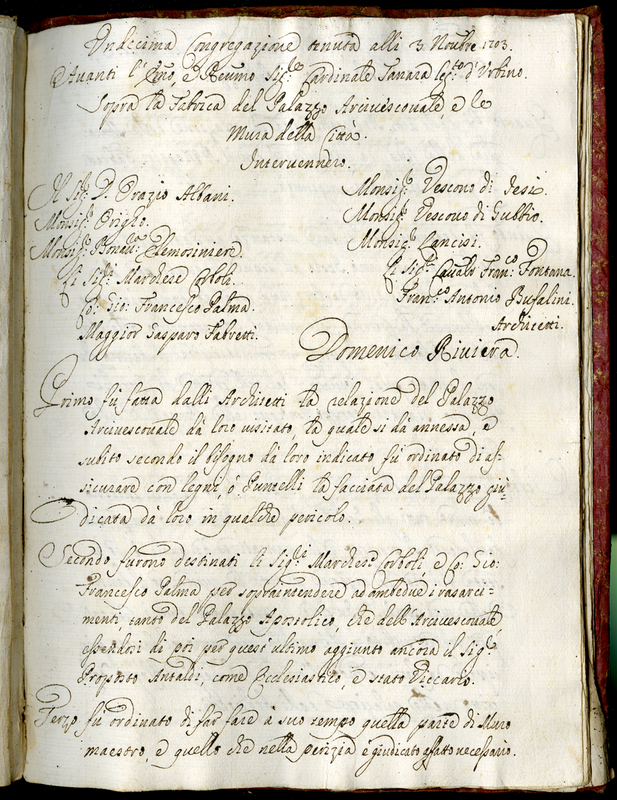 Undecima Congregazione tenuta alli 3. Novbre 1703.
Avanti l'Emo, e Reumo Sig.re Cardinale Tanara Leg.to d'Urbino.
Sopra la Fabrica del Palazzo Arcivescovale, e le
Mura della Città.
Intervennero.
Il Sig.r D. Orazio Albani.
Monsig.r Origho.
Monsig.r Bonav.a Elemosiniere.
Li Sig.ri Marchese Corboli.
Co: Gio: Francesco Palma.
Maggior Gasparo Fabretti.
Monsig.r Vescovo di Jesi.
Monsig.r Vescovo di Gubbio.
Monsig.r Lancisi.
Li Sig.ri Cavalr Fran.co Fontana.
Fran.co Antonio Bufalini.
Architetti.
Domenico Riviera.
Primo fù fatta dalli Architetti la relazione del Palazzo
Arcivescovale dà loro visitato, la quale si dà annessa, e
subito secondo il bisogno dà loro indicato fù ordinato di as-
sicurare con legni, ò Puntelli la facciata del Palazzo giu-
dicata dà loro in qualche pericolo.
Secondo furono destinati li Sig.ri Marchese Corboli, e Co: Gio:
Francesco Palma per sopraintendere ad ambedue i rasarci-
menti tanto del Palazzo Apostolico, che dell'Arcivescovale
essendosi di poi per quest'ultimo aggiunto ancora il Sig.r
Proposto Antaldi, come Ecclesiastico, e stato Viccario.
Terzo fù ordinato di far fare à suo tempo quella parte di Muro
maestro, e quello che nella perizia è giudicato affatto necessario.